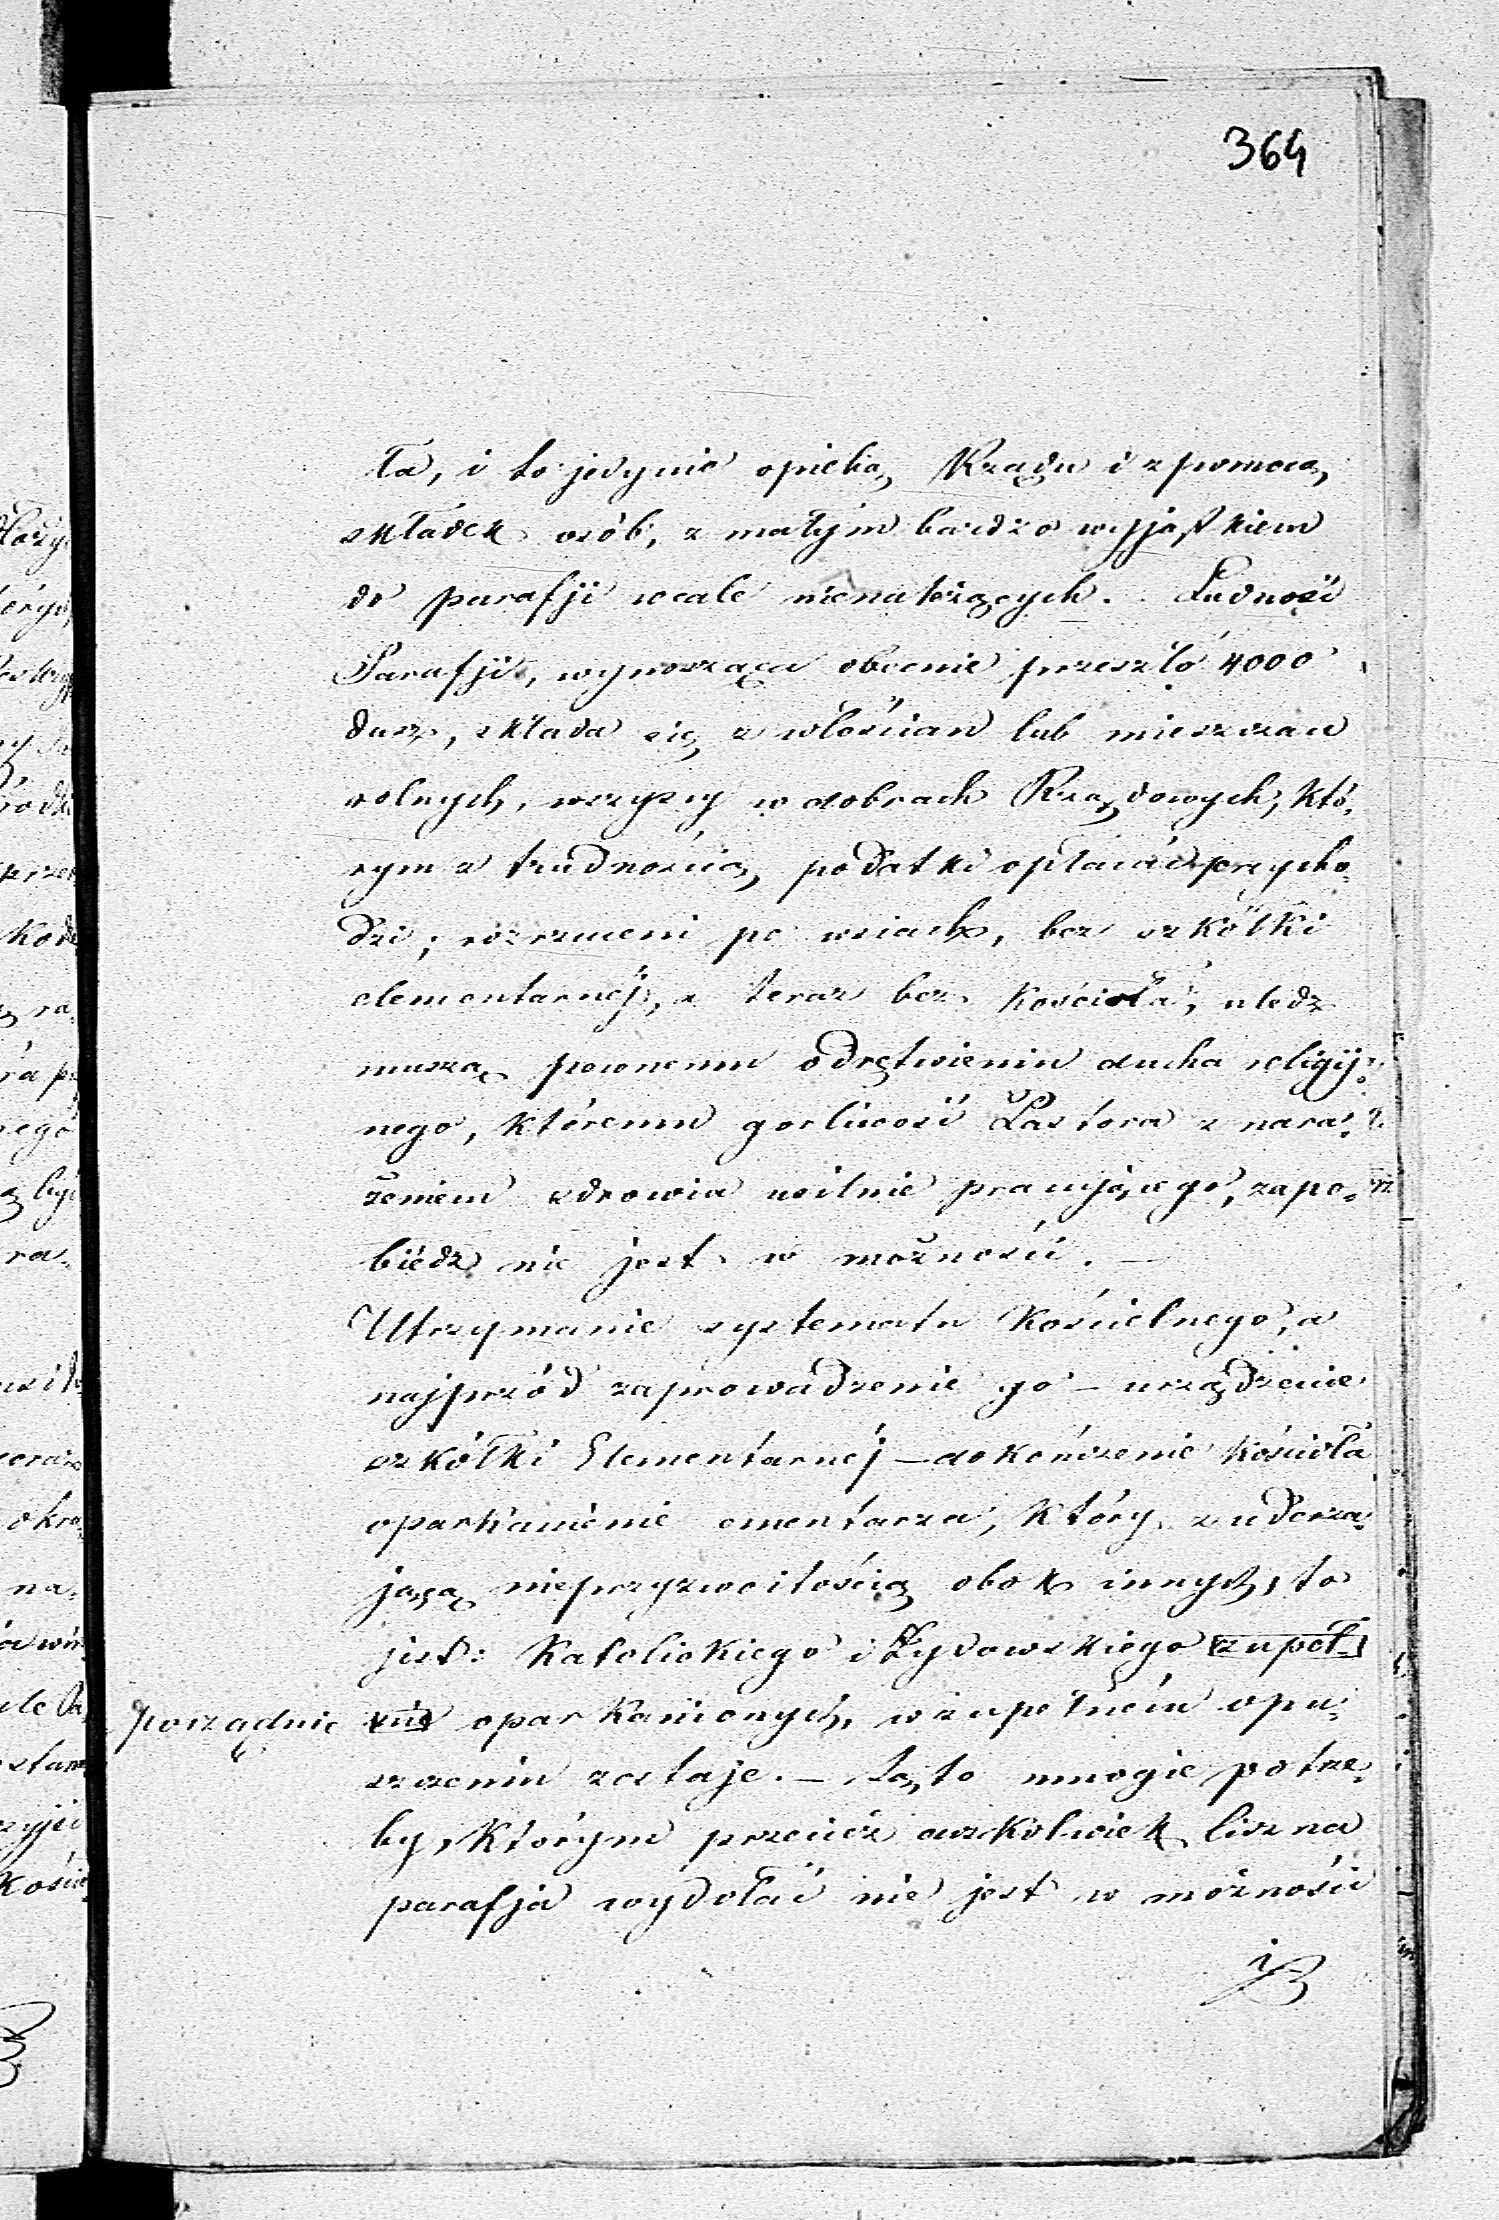 364
ła, i to jedynie opieką Rządu i z pomocą
składek osób, z małym bardzo wyjątkiem
do parafji wcale nienależących. Ludność
Parafji, wynosząca obecnie przeszło 4000
dusz, składa się z włościan lub mieszczan
rolnych, wszyscy w dobrach Rządowych, któ-
rym z trudnością podatki opłacać przycho-
dzi; rozrzuceni po wsiach, bez szkółki
elementarnéj, a teraz bez kościoła, uledz
muszą pewnemu odrętwieniu ducha religij-
nego, któremu gorliwość Pastora z nara-
żeniem zdrowia usilnie pracującego, zapo-
biédz nie jest w możności. —
Utrzymanie systematu kościelnego, a
najprzód zaprowadzenie go — urządzenie
szkółki Elementarnéj — dokończenie kościoła
oparkanienie cmentarza, który z uderza-
jącą nieprzyzwoitością obok innych, to
jest: Katolickiego i Żydowskiego zupeł-
porządnie nie oparkanionych, w zupełném opu-
szczeniu zostaje. — Są to mnogie potrze-
by, którym przecież aczkolwiek liczna
parafja wydołać nie jest w możności